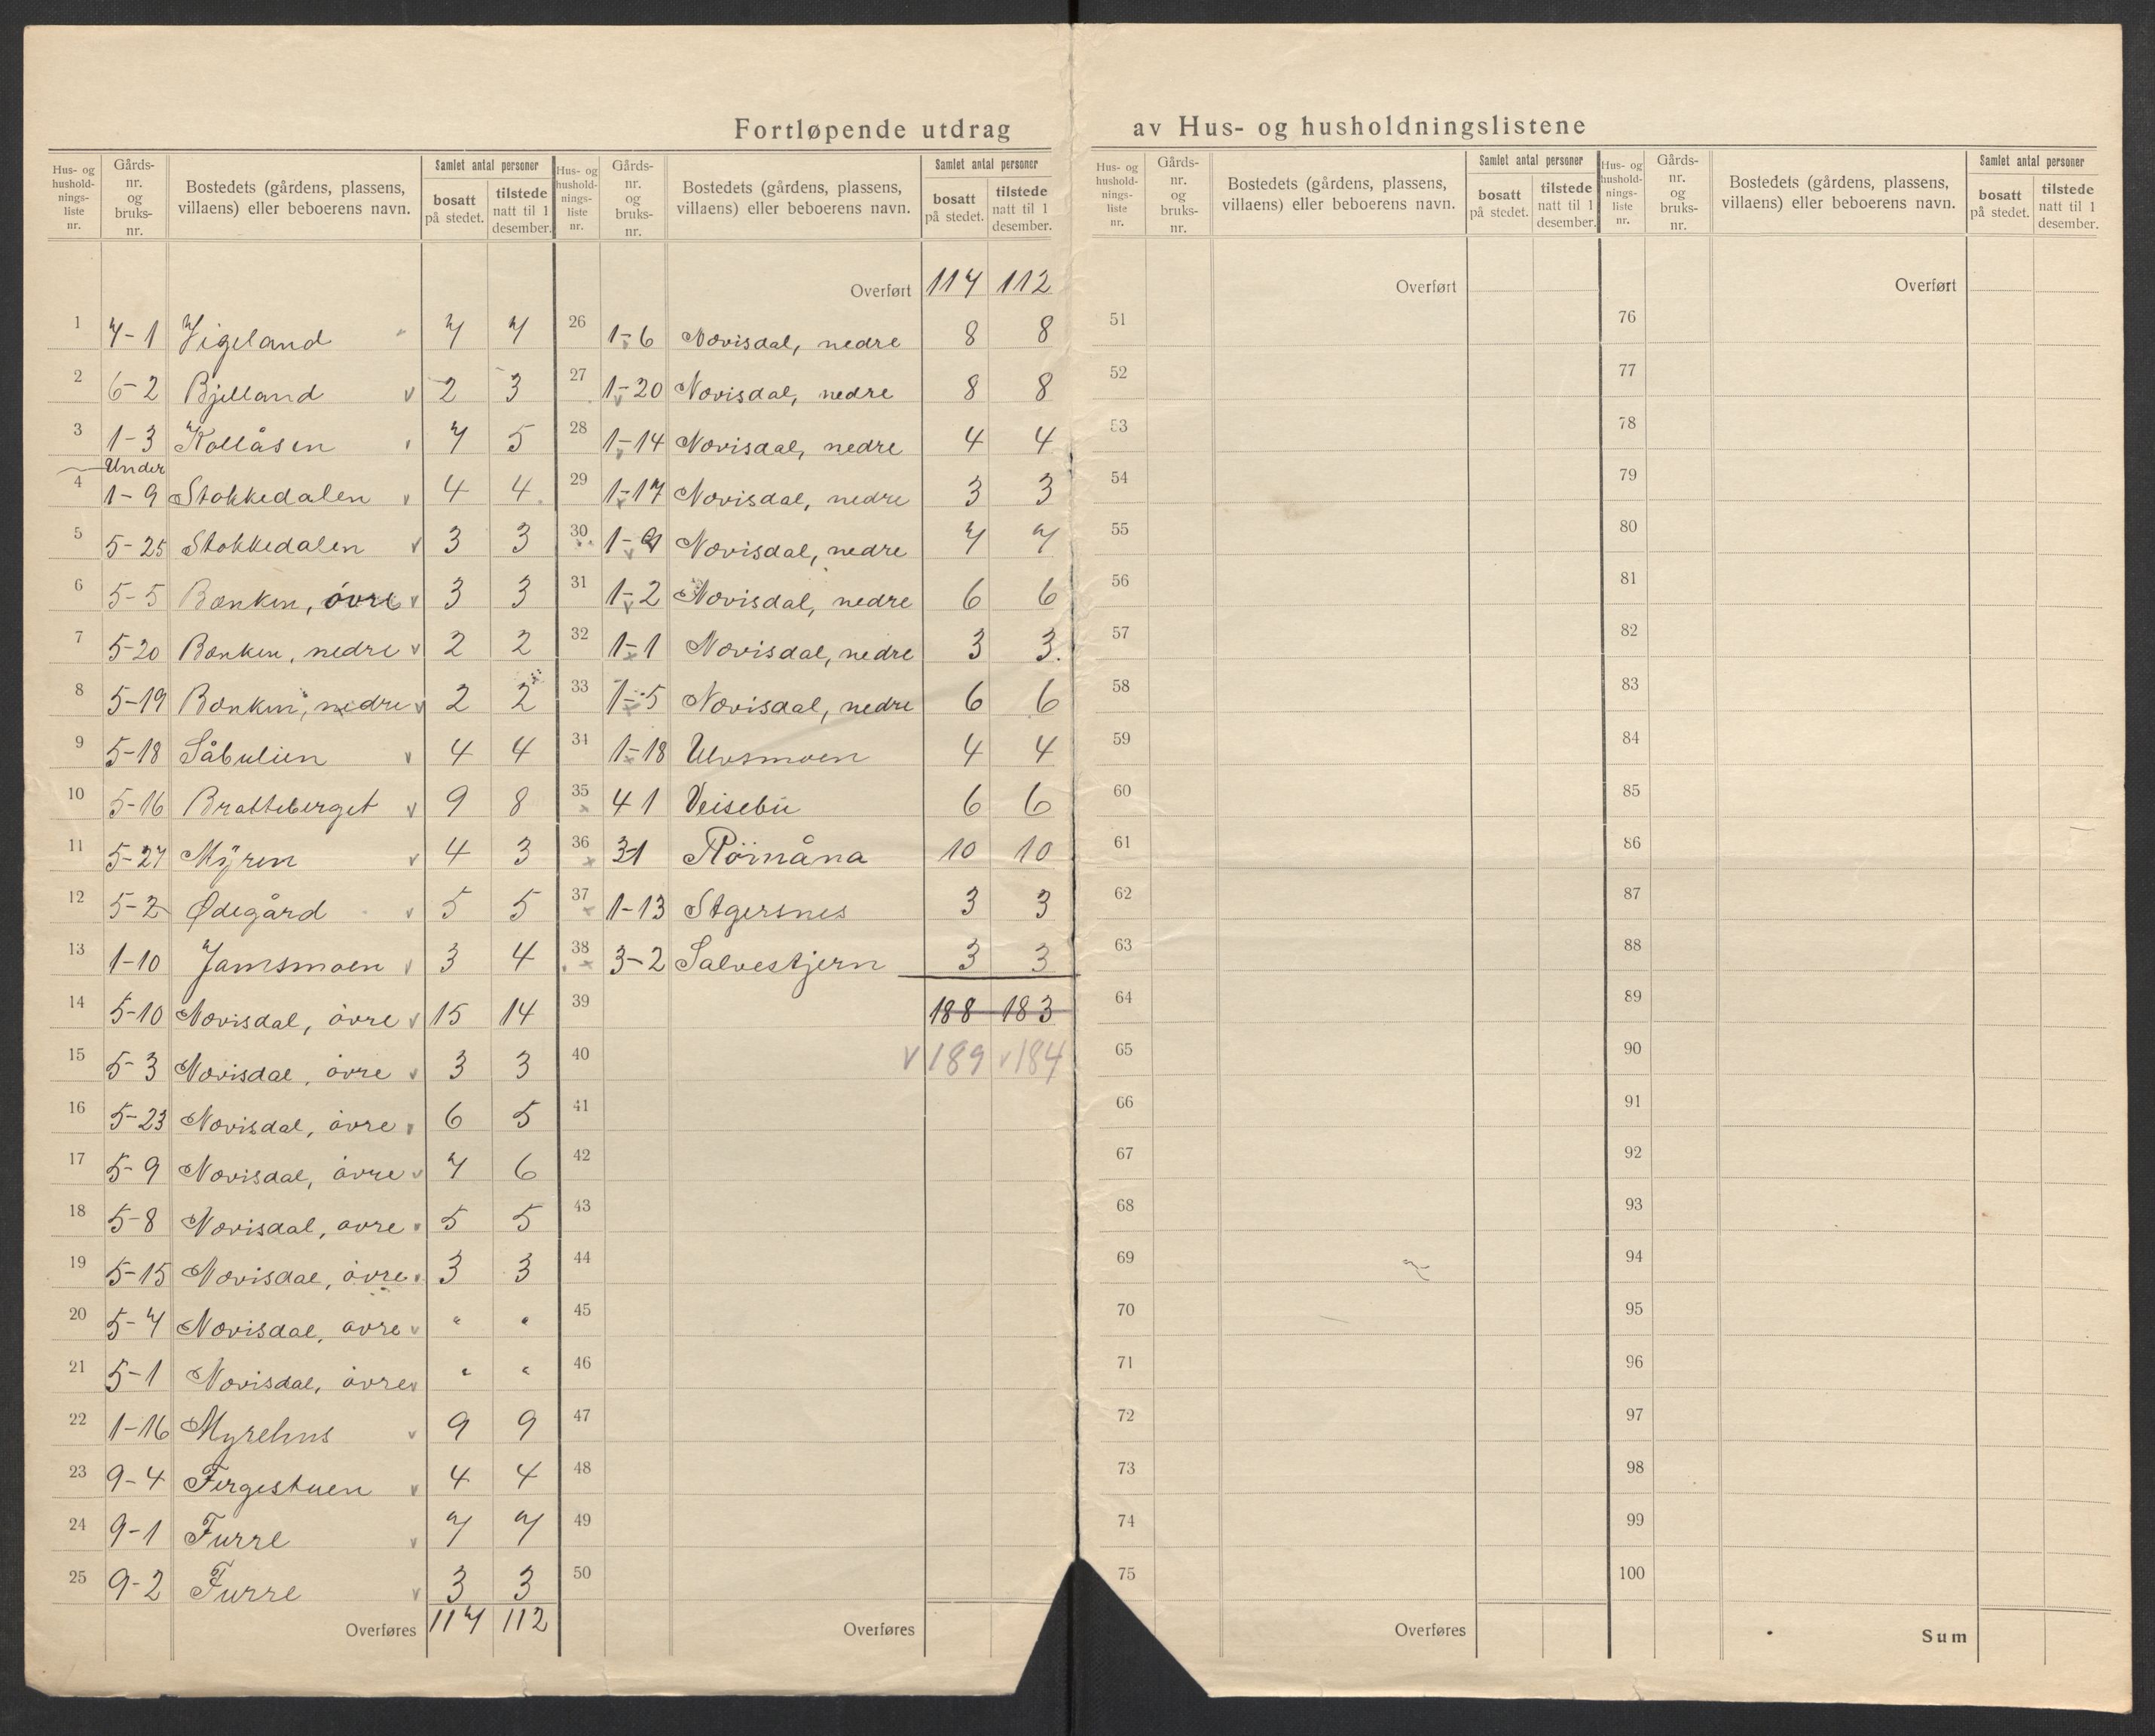 Fortløpende utdrag av Hus- og husholdningslistene
Hus- og hushold-nings-liste nr. | Gårds-nr. og bruks-nr. | Bostedets (gårdens, plassens, villaens) eller beboerens navn. | Samlet antal personer bosatt på stedet. | tilstede natt til 1 desember.
1 7-1 Vigeland 7 7
2 6-2 Bjelland v 2 3
3 1-3 Kollåsen 7 5
Under
4 1-9 Stokkedalen v 4 4
5 5-25 Stokkedalen v 3 3
6 5-5 Bænken, övre v 3 3
7 5-20 Bænken, nedre v 2 2
8 5-19 Bænken, nedre v 2 2
9 5-18 Såbulien v 4 4
10 5-16 Bratteberget v 9 8
11 5-27 Mÿren v 4 3
12 5-2 Ødegård v 5 5
13 1-10 Jamsmoen v 3 4
14 5-10 Nævisdal, övre v 15 14
15 5-3 Nævisdal, övre v 3 3
16 5-23 Nævisdal, övre v 6 5
17 5-9 Nævisdal, övre v 7 6
18 5-8 Nævisdal, övre v 5 5
19 5-15 Nævisdal, övre v 3 3
20 5-7 Nævisdal, övre v " "
21 5-1 Nævisdal, övre v " "
22 1-16 Myrehus v 9 9
23 9-4 Fergestuen v 4 4
24 9-1 Furre v 7 7
25 9-2 Furre v 3 3
Overføres 117 112
Hus- og hushold-nings-liste nr. | Gårds-nr. og bruks-nr. | Bostedets (gårdens, plassens, villaens) eller beboerens navn. | Samlet antal personer bosatt på stedet. | tilstede natt til 1 desember.
Overført 117 112
26 1-6 Nævisdal, nedre 8 8
27 1-20 Nævisdal, nedre 8 8
28 1-14 Nævisdal, nedre 4 4
29 1-17 Nævisdal, nedre 3 3
30 Nævisdal, nedre 7 7
31 1-2 Nævisdal, nedre 6 6
32 1-1 Nævisdal, nedre 3 3.
33 1-5 Nævisdal, nedre 6 6
34 1-18 Ulvsmoen 4 4
35 4 1 Veisebu 6 6
36 3-1 10 10
37 1-13 3 3
38 3-2 Salvestjern 3 3
39 188 183
40 v 189 v 184
41
42
43
44
45
46
47
48
49
50
Overføres
Hus- og hushold-nings-liste nr. | Gårds-nr. og bruks-nr. | Bostedets (gårdens, plassens, villaens) eller beboerens navn. | Samlet antal personer bosatt på stedet. | tilstede natt til 1 desember.
Overført
51
52
53
54
55
56
57
58
59
60
61
62
63
64
65
66
67
68
69
70
71
72
73
74
75
Overføres
Hus- og hushold-nings-liste nr. | Gårds-nr. og bruks-nr. | Bostedets (gårdens, plassens, villaens) eller beboerens navn. | Samlet antal personer bosatt på stedet. | tilstede natt til 1 desember.
Overført
76
77
78
79
80
81
82
83
84
85
86
87
88
89
90
91
92
93
94
95
96
97
98
99
100
Sum